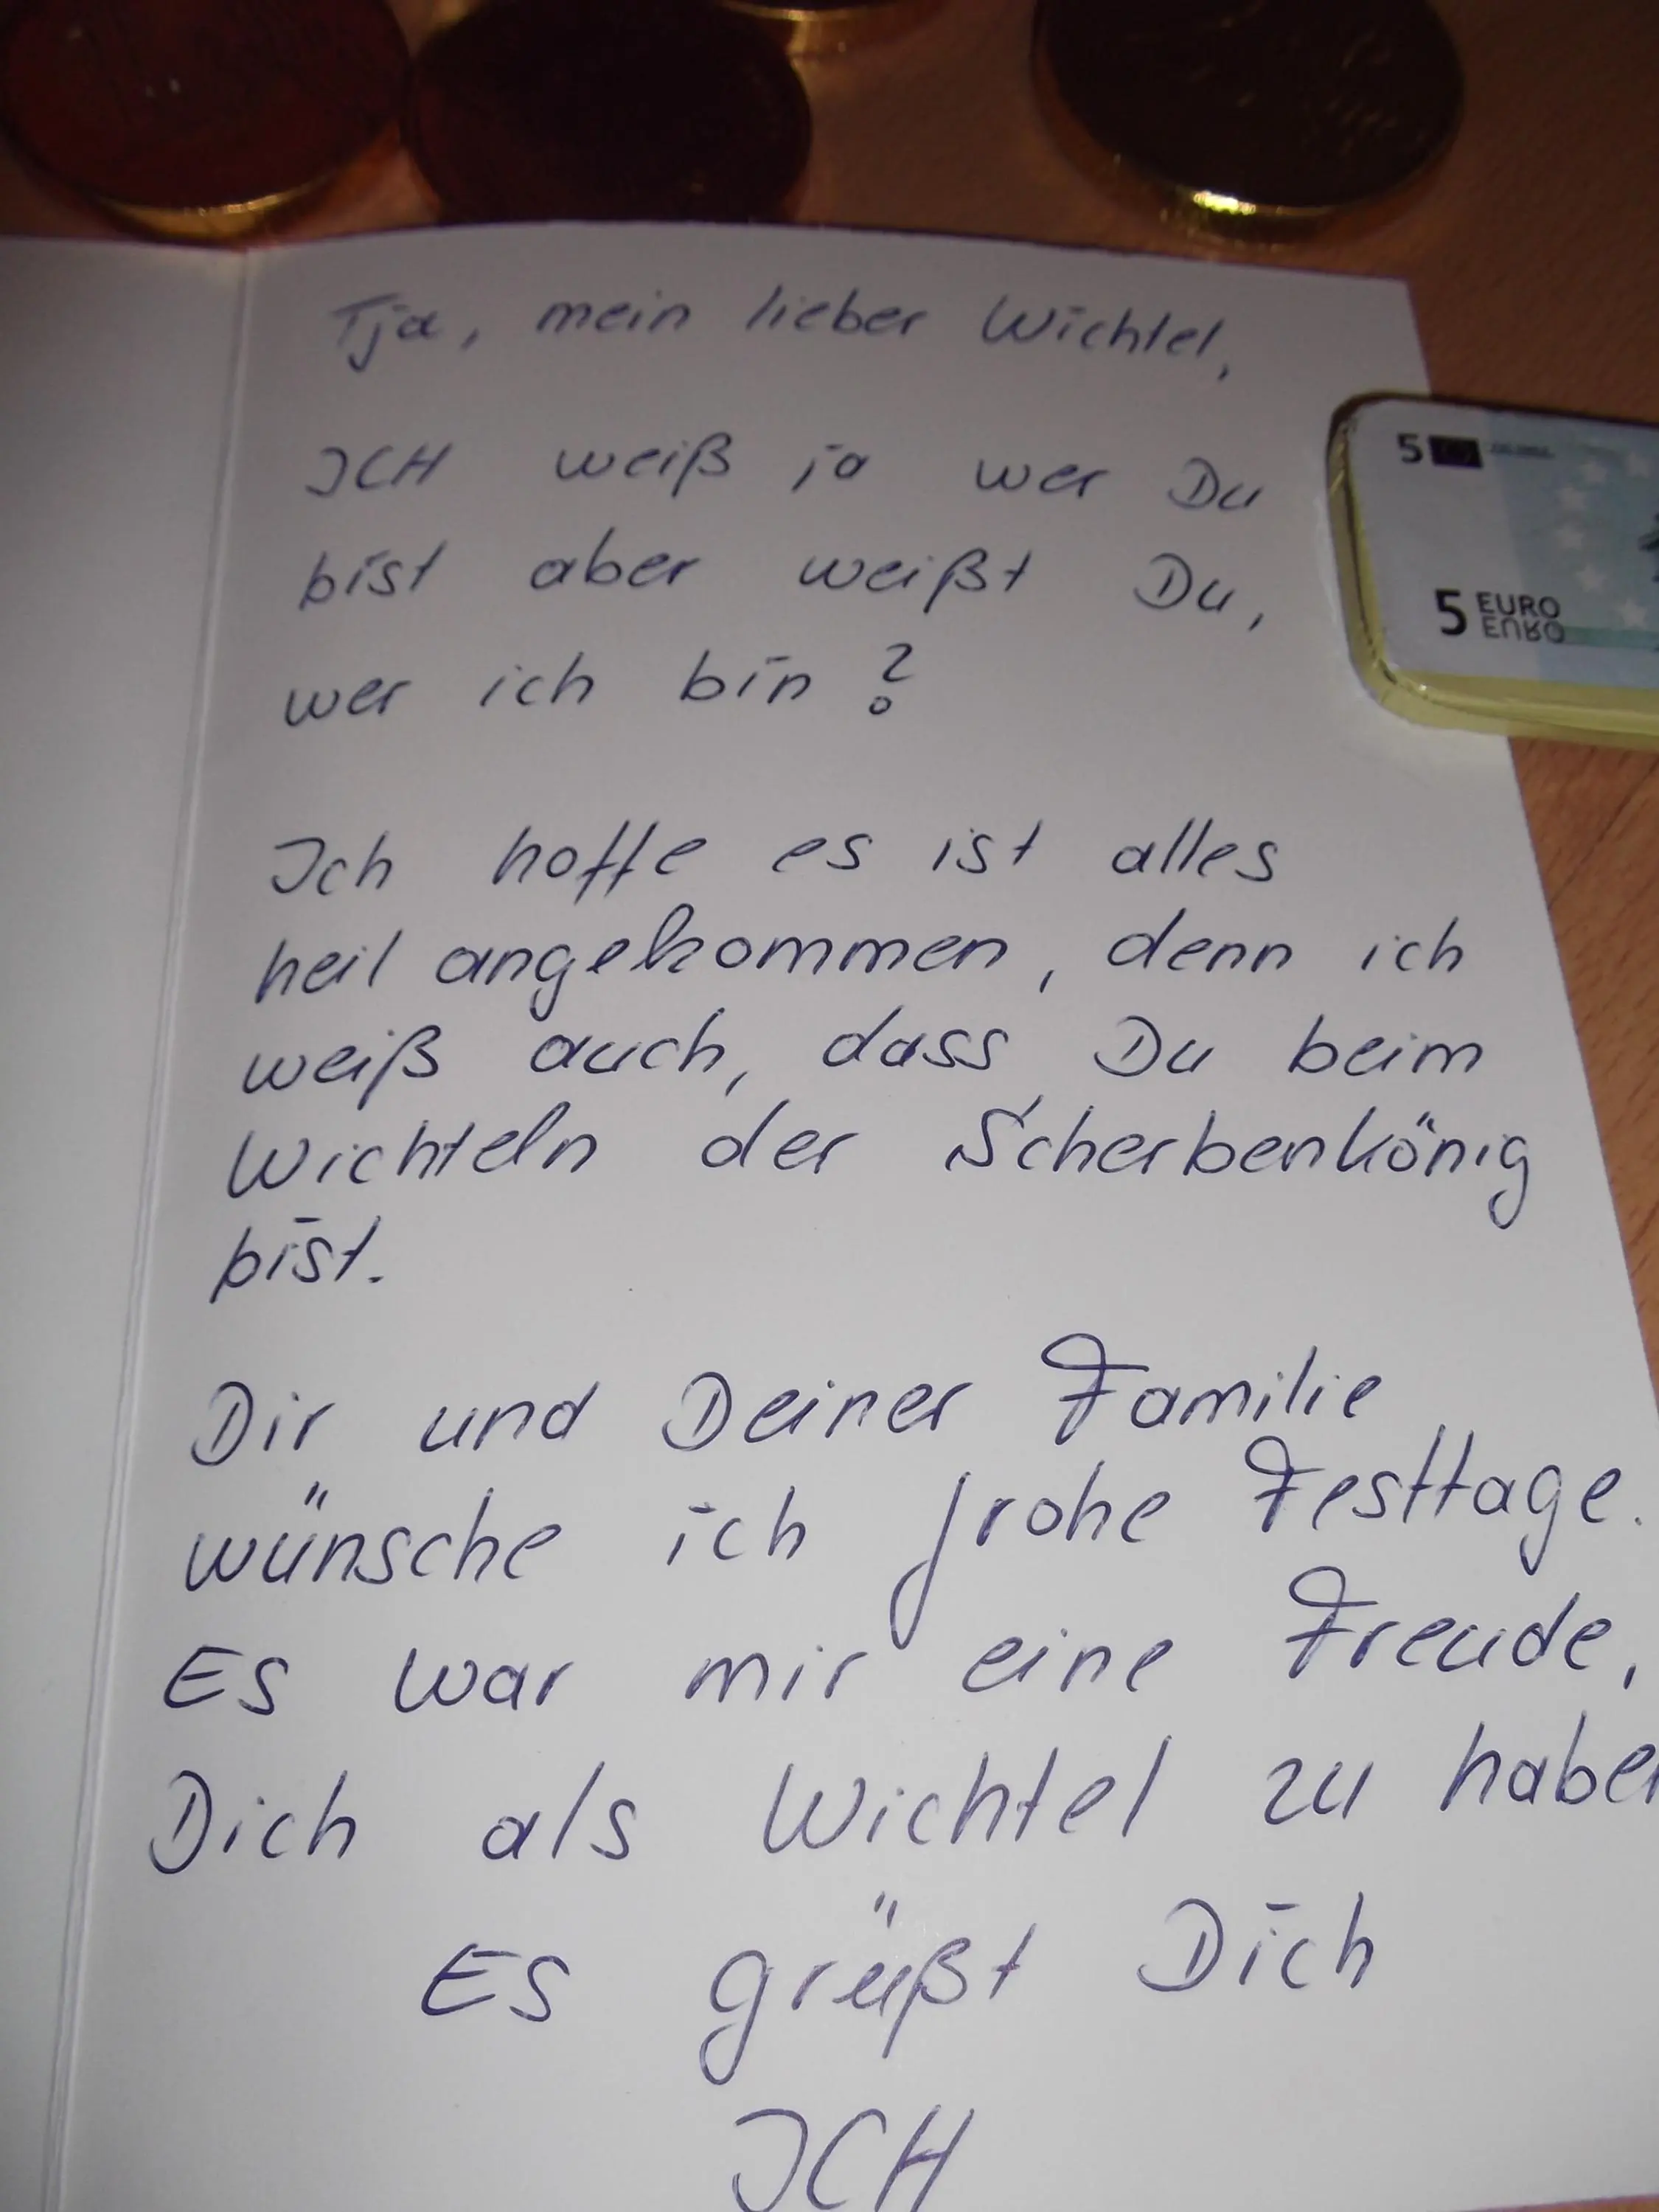 Tja, mein lieber Wichtel,
ICH weiß ja wer Du
bist aber weißt Du,
wer ich bin?
Ich hoffe es ist alles
heil angekommen, denn ich
weiß auch, dass Du beim
Wichteln der Scherbenkönig
bist.
Dir und Deiner Familie
wünsche ich frohe Festtage.
Es war mir eine Freude,
Dich als Wichtel zu habe
Es grüßt Dich
ICH
5
5 EURO
EURO